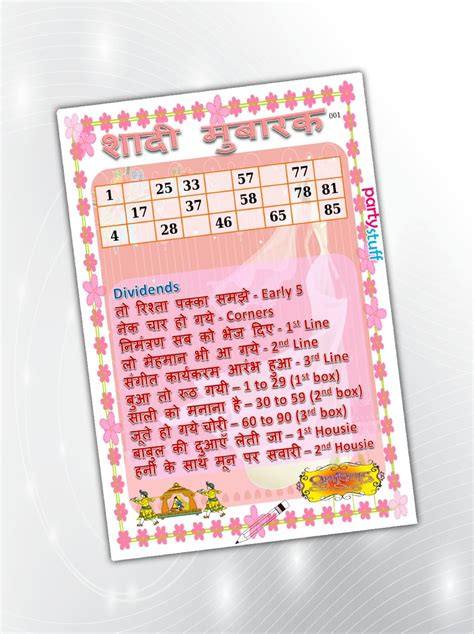 शादी मुबारक 001
1 25 33 57 77
17 37 58 78 81
4 28 46 65 85
partystuff
Dividends
तो रिश्ता पक्का समझे - Early 5
नेक चार हो गये - Corners
निमंत्रण सब को भेज दिए - 1st Line
लो मेहमान भी आ गये - 2nd Line
संगीत कार्यकरम आरंभ हुआ - 3rd Line
बुआ तो रुठ गयी – 1 to 29 (1st box)
साली को मनाना है – 30 to 59 (2nd box)
जूते हो गये चोरी – 60 to 90 (3rd box)
बाबुल की दुआएँ लेती जा – 1st Housie
हनी के साथ मून पर सवारी – 2nd Housie